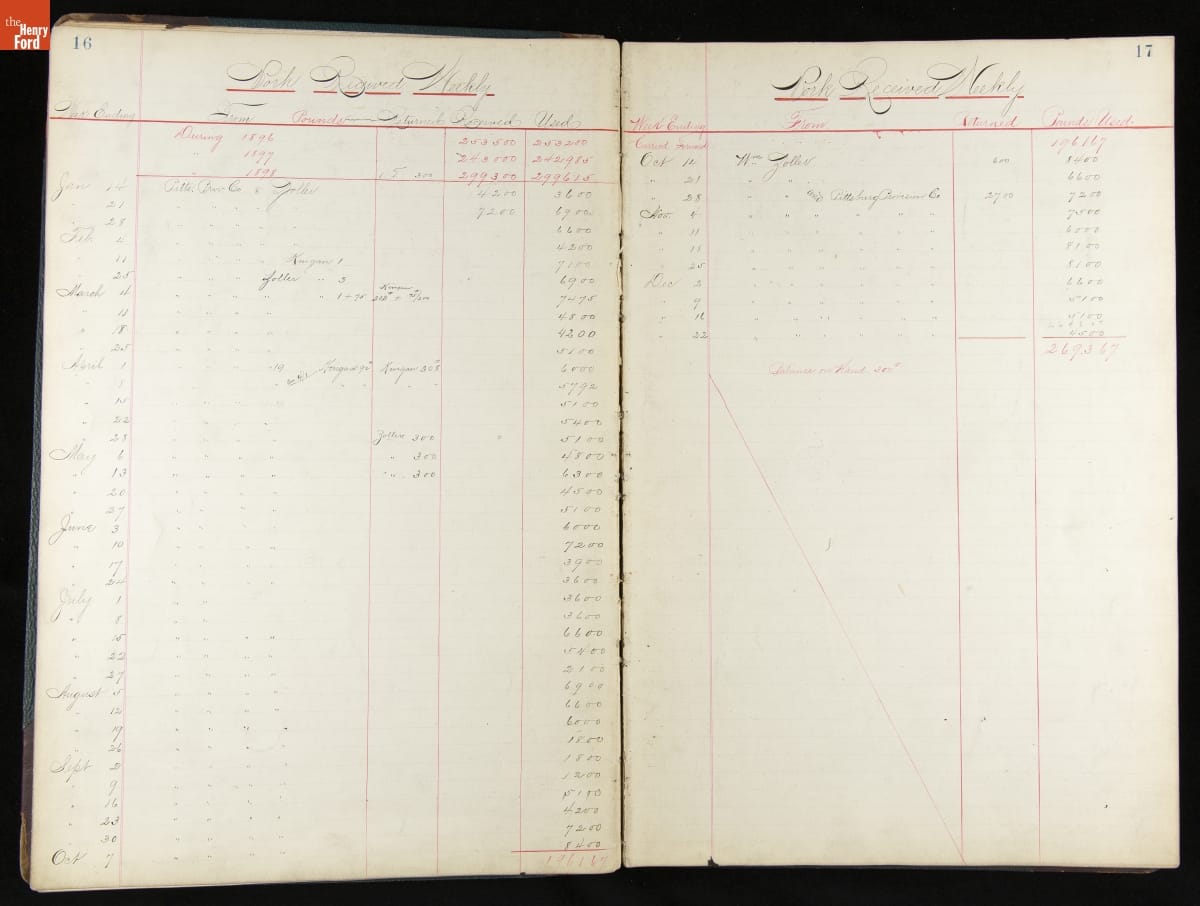 the
Henry
Ford
16
Pork Received Weekly
Week Ending From Pounds Returned Received Used
During 1896 253500 253200
" 1897 243000 242985
" 1898 300 299300 299615
Jan 14 Pitts. Prov Co & Zoller 4200 3600
" 21 " " " " 7200 6900
" 28 " " " " 6600
Feb 4 " " " " 4200
" 11 " " " " Kingan 1 7100
" 25 " " " Zoller " 3 6900
March 4 " " " " " 1+75 Kingan 7475
" 11 " " " " 4800
" 18 " " " " 4200
" 25 " " " " 5100
April 1 " " " " 19 Kingan 92 Kingan 308 6000
" 8 " " " " 5792
" 15 " " " " 5100
" 22 " " " " 5400
" 28 " " " " Zollers 300 5100
May 6 " " " " " 300 4800
" 13 " " " " " 300 6300
" 20 " " " " 4500
" 27 " " " " 5100
June 3 " " " " 6000
" 10 " " " " 7200
" 17 " " " " 3900
" 24 " " " " 3600
July 1 " " 3600
" 8 " " 3600
" 15 " " " " 6600
" 22 " " " " 5400
" 27 " " " " 2100
August 5 " " " " 6900
" 12 " " " " 6600
" 19 " " " " 6000
" 26 " " " " 1800
Sept 2 " " " " 1800
" 9 " " " " 1200
" 16 " " " " 5180
" 23 " " " " 4200
" 30 " " " " 7200
Oct 7 " " " " 8400
196167
17
Pork Received Weekly
Week Ending From Returned Pounds Used
Carried Forward 196167
Oct 14 Wm Zoller 600 8400
" 21 " " 6600
" 28 " " and Pittsburg Provision Co 2700 7200
Nov. 4 " " " " " " 7500
" 11 " " " " " " 6000
" 18 " " " " " " 8100
" 25 " " " " " " 8100
Dec 2 " " " " " " 6600
" 9 " " " " " " 5100
" 16 " " " " " " 5100
" 22 " " " " " " 4500
269367
Balance on Hand 300#